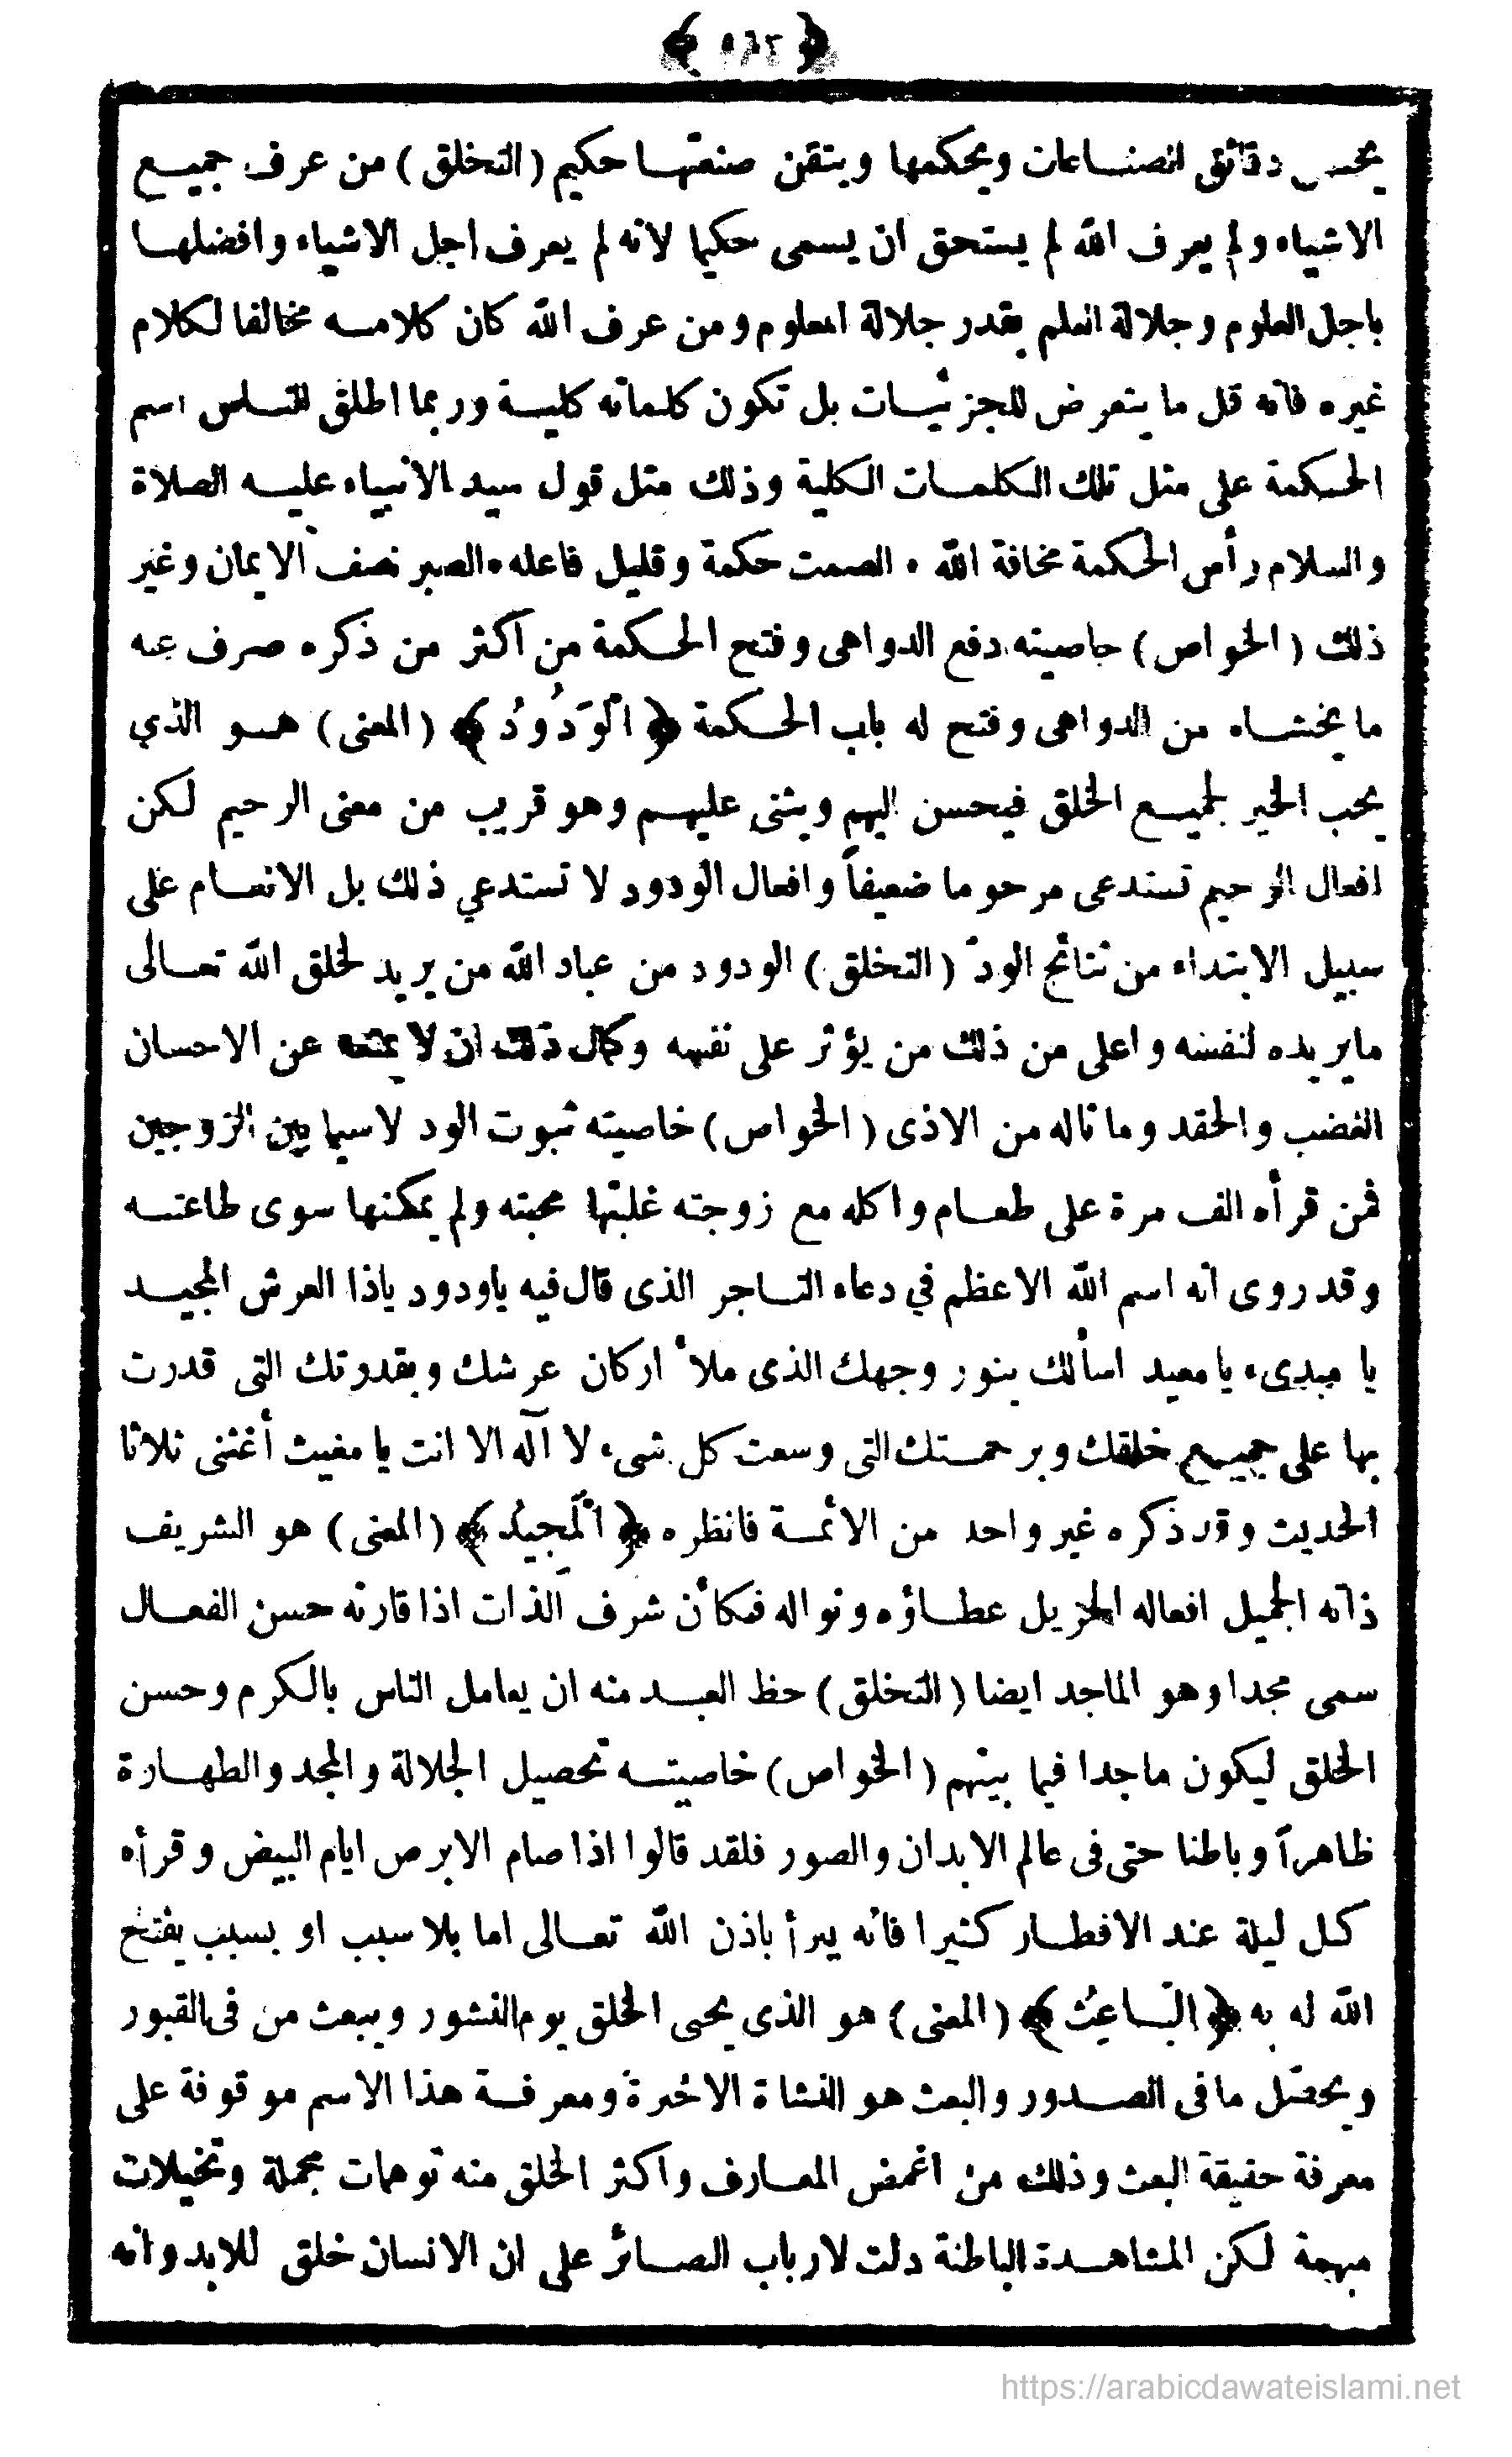 يحسن دقائق الصناعات ويحكمها ويتقن صنعتها حكيم (التخلق) من عرف جميع
الاشياء ولم يعرف الله لم يستحق ان يسمى حكيما لانه لم يعرف اجل الاشياء وافضلها
باجل العلوم وجلالة العلم بقدر جلالة المعلوم ومن عرف الله كان كلامه مخالفا لكلام
غيره فانه قل ما يتعرض للجزئيات بل تكون كلماته كلية وربما اطلق الناس اسم
الحكمة على مثل تلك الكلمات الكلية وذلك مثل قول سيد الانبياء عليه الصلاة
والسلام رأس الحكمة مخافة الله • الصمت حكمة وقليل فاعله • الصبر نصف الايمان وغير
ذلك (الخواص) خاصيته دفع الدواهى وفتح الحكمة من اكثر من ذكره صرف عنه
ما يخشاه من الدواهى وفتح له باب الحكمة ﴿ اَلْوَدُودُ ﴾ (المعنى) هو الذي
يحب الخير لجميع الخلق فيحسن اليهم ويثنى عليهم وهو قريب من معنى الرحيم لكن
افعال الرحيم تستدعى مرحوما ضعيفاً وافعال الودود لا تستدعي ذلك بل الانعام على
سبيل الابتداء من نتائج الودّ (التخلق) الودود من عباد الله من يريد لخلق الله تعالى
مايريده لنفسه واعلى من ذلك من يؤثر على نفسه وكمال ذلك ان لا يمنعه عن الاحسان
الغضب والحقد وما ناله من الاذى (الخواص) خاصيته ثبوت الود لاسيما بين الزوجين
فمن قرأه الف مرة على طعام واكله مع زوجته غلبتها محبته ولم يمكنها سوى طاعته
وقد روى انه اسم الله الاعظم في دعاء التاجر الذى قال فيه ياودود ياذا العرش المجيد
يا مبدىء يا معيد اسألك بنور وجهك الذى ملأ اركان عرشك وبقدرتك التى قدرت
بها على جميع خلقك وبرحمتك التى وسعت كل شىء لا اله الا انت يا مغيث أغثنى ثلاثا
الحديث وقد ذكره غير واحد من الائمة فانظره ﴿ اَلْمَجِيدُ ﴾ (المعنى) هو الشريف
ذاته الجميل افعاله الجزيل عطاؤه ونواله فكأن شرف الذات اذا قارنه حسن الفعال
سمى مجدا وهو الماجد ايضا (التخلق) حظ العبد منه ان يعامل الناس بالكرم وحسن
الخلق ليكون ماجدا فيما بينهم (الخواص) خاصيته تحصيل الجلالة والمجد والطهارة
ظاهراً وباطنا حتى فى عالم الابدان والصور فلقد قالوا اذا صام الابرص ايام البيض وقرأه
كل ليلة عند الافطار كثيرا فانه يبرأ باذن الله تعالى اما بلا سبب او بسبب يفتح
الله له به ﴿ اَلْبَاعِثُ ﴾ (المعنى) هو الذى يحى الخلق يوم النشور ويبعث من فى القبور
ويحصّل مافى الصدور والبعث هو النشاة الاخرة ومعرفة هذا الاسم موقوفة على
معرفة حقيقة البعث وذلك من اغمض المعارف واكثر الخلق منه توهمات مجملة وتخيلات
مبهمة لكن المشاهدة الباطنة دلت لارباب البصائر على ان الانسان خلق للابد وانه
https://arabicdawateislami.net